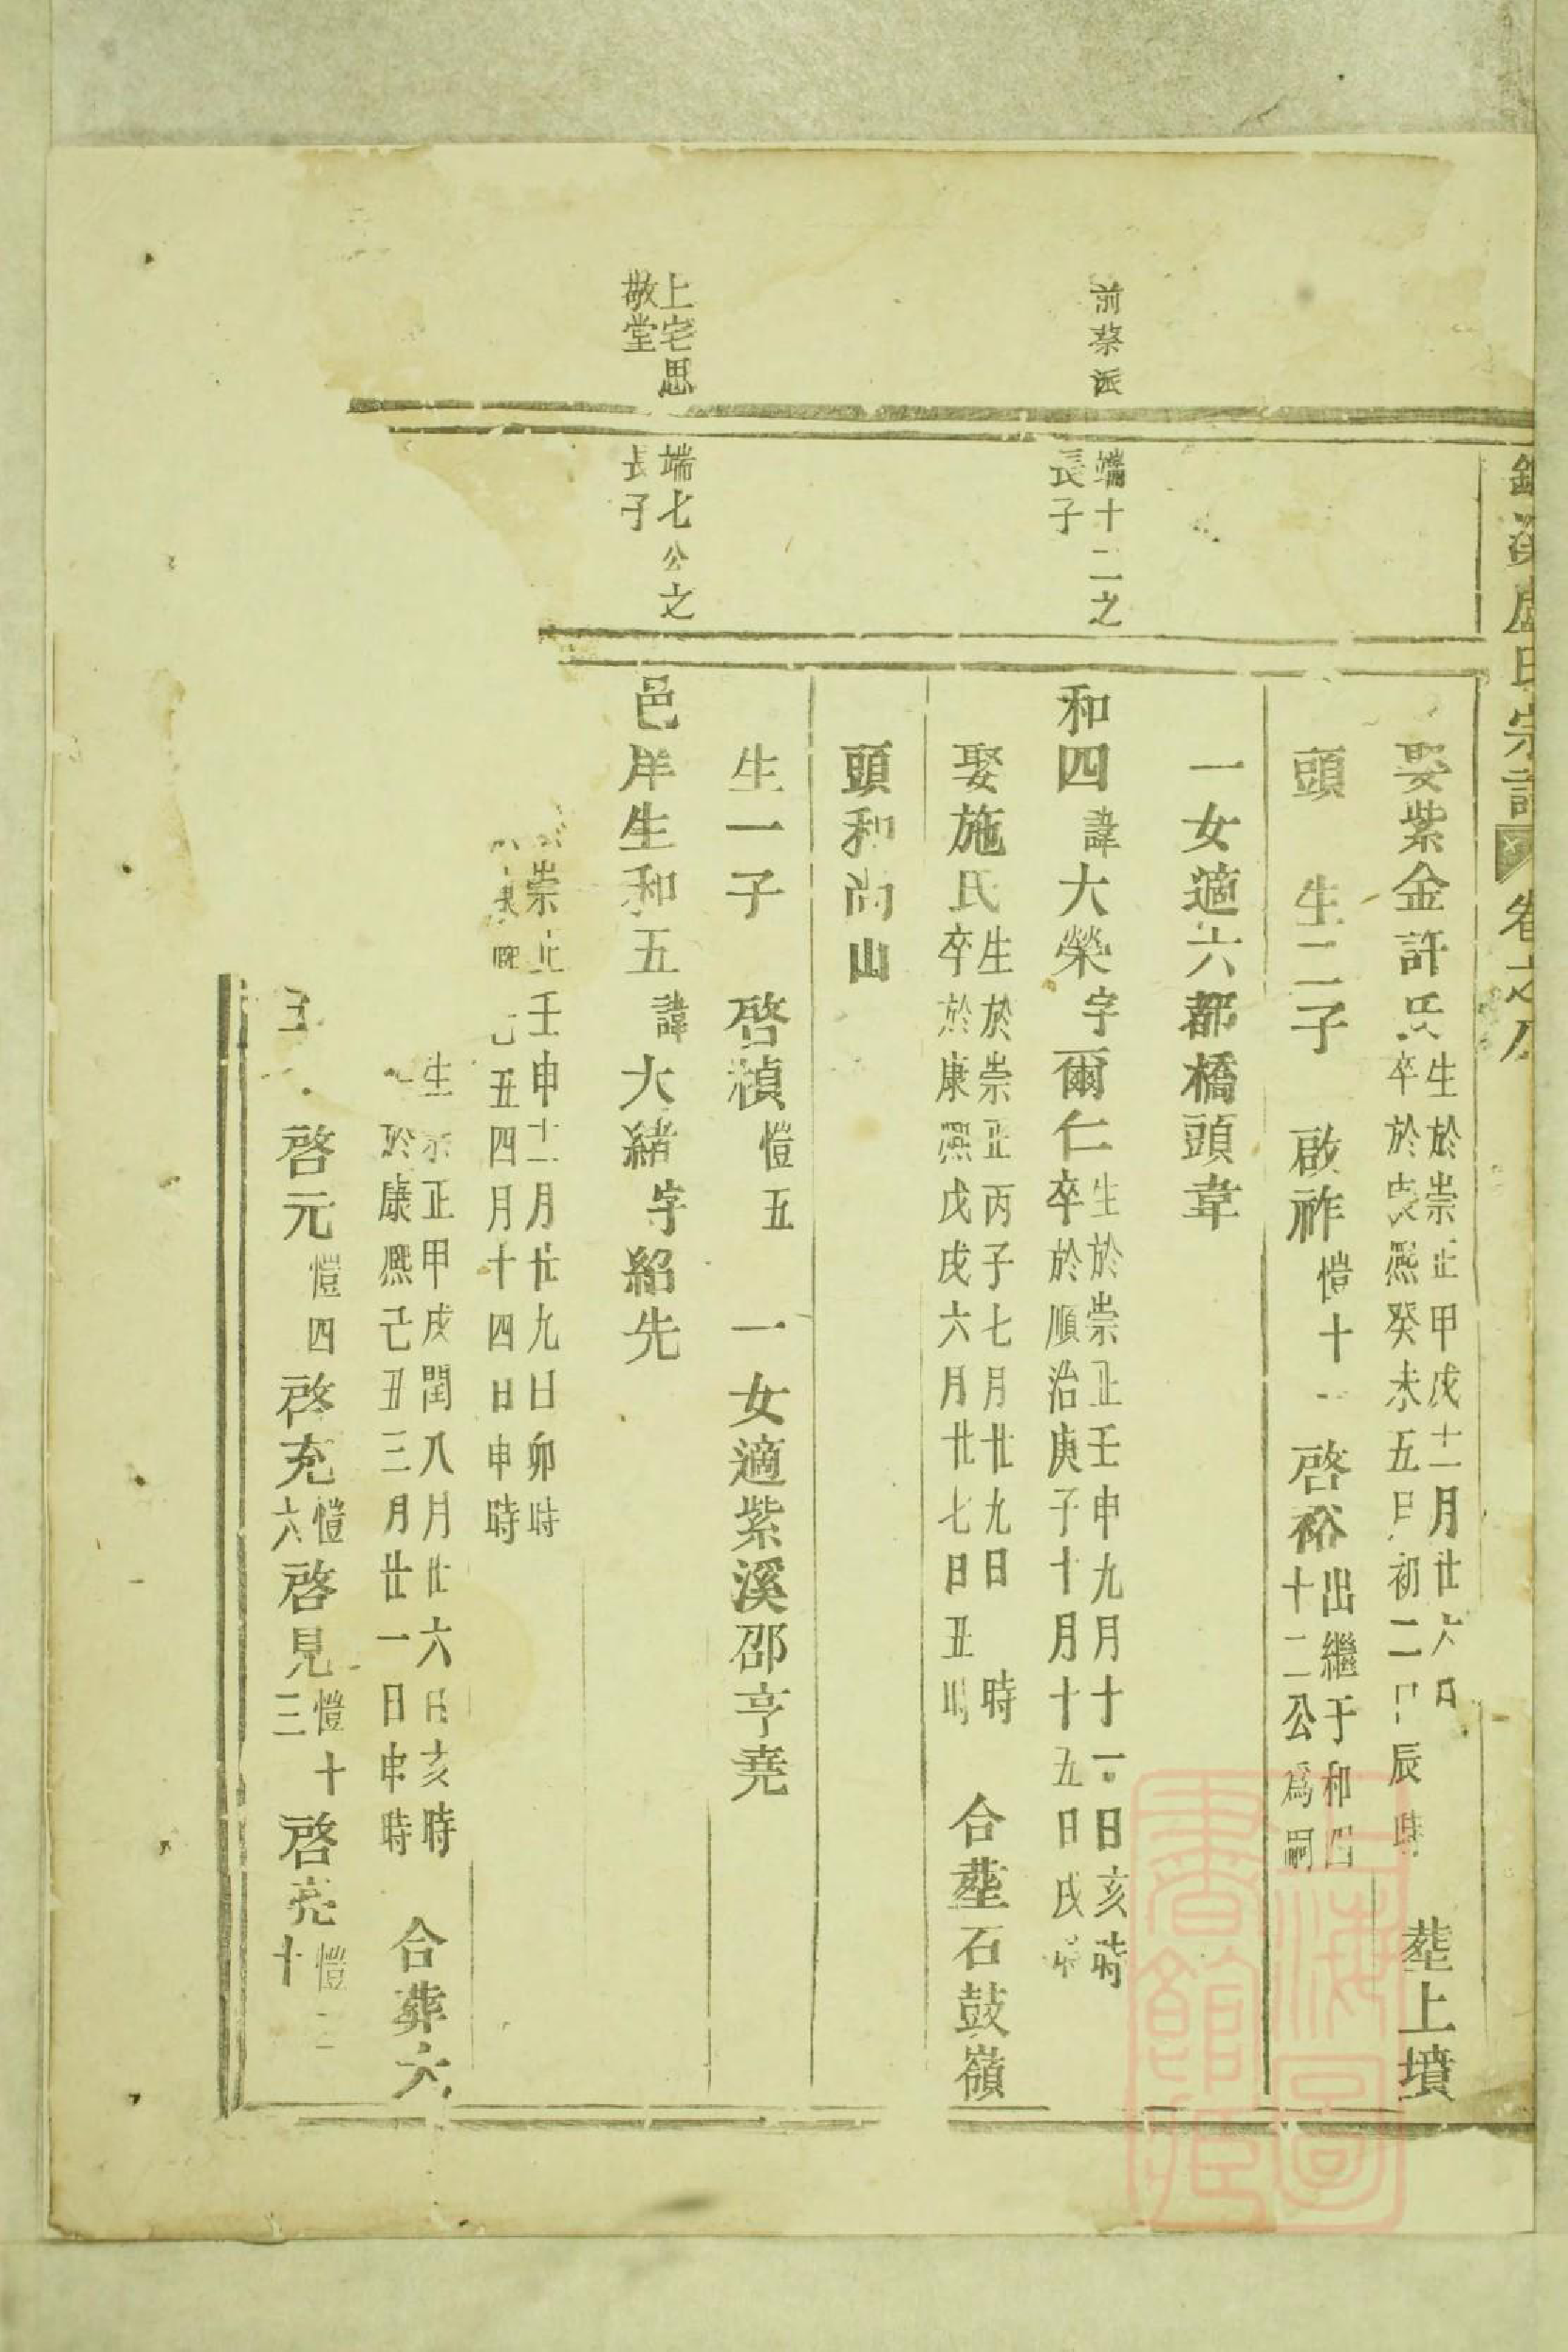 盧氏宗譜 卷之
娶紫金許氏
生於崇正甲戌十二月廿六日
卒於康熙癸未五月初二日辰時
塟上墳
頭 生二子 啟祚愷十一 啓裕
出繼于和四
十二公爲嗣
一女適六都橋頭韋
前蔡派
端十二之
長子
和四諱大榮字爾仁
生於崇正壬申九月十一日亥時
卒於順治庚子十月十五日戌時
娶施氏
生於崇正丙子七月廿九日 時
卒於康熙戊戌六月廿七日丑時
合塟石鼓嶺
頭和尚山
生一子 啓禎愷五 一女適紫溪邵亨堯
上宅思
敬堂
端七公之
長子
邑庠生和五諱大緒字紹先
崇正壬申十二月廿九日卯時
己丑四月十四日申時
生崇正甲戌閏八月廿六日亥時
於康熙己丑三月廿一日申時
合葬六
啓元愷四 啓充愷六 啓見愷十三 啓亮愷十二